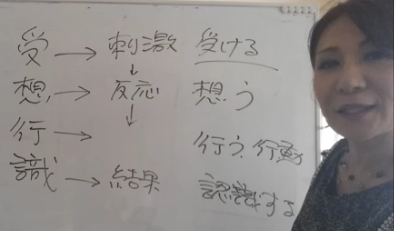 受 → 刺激 受ける
↓
想 → 反応 想う
↓
行 → 行う、行動
識 → 結果 認識する